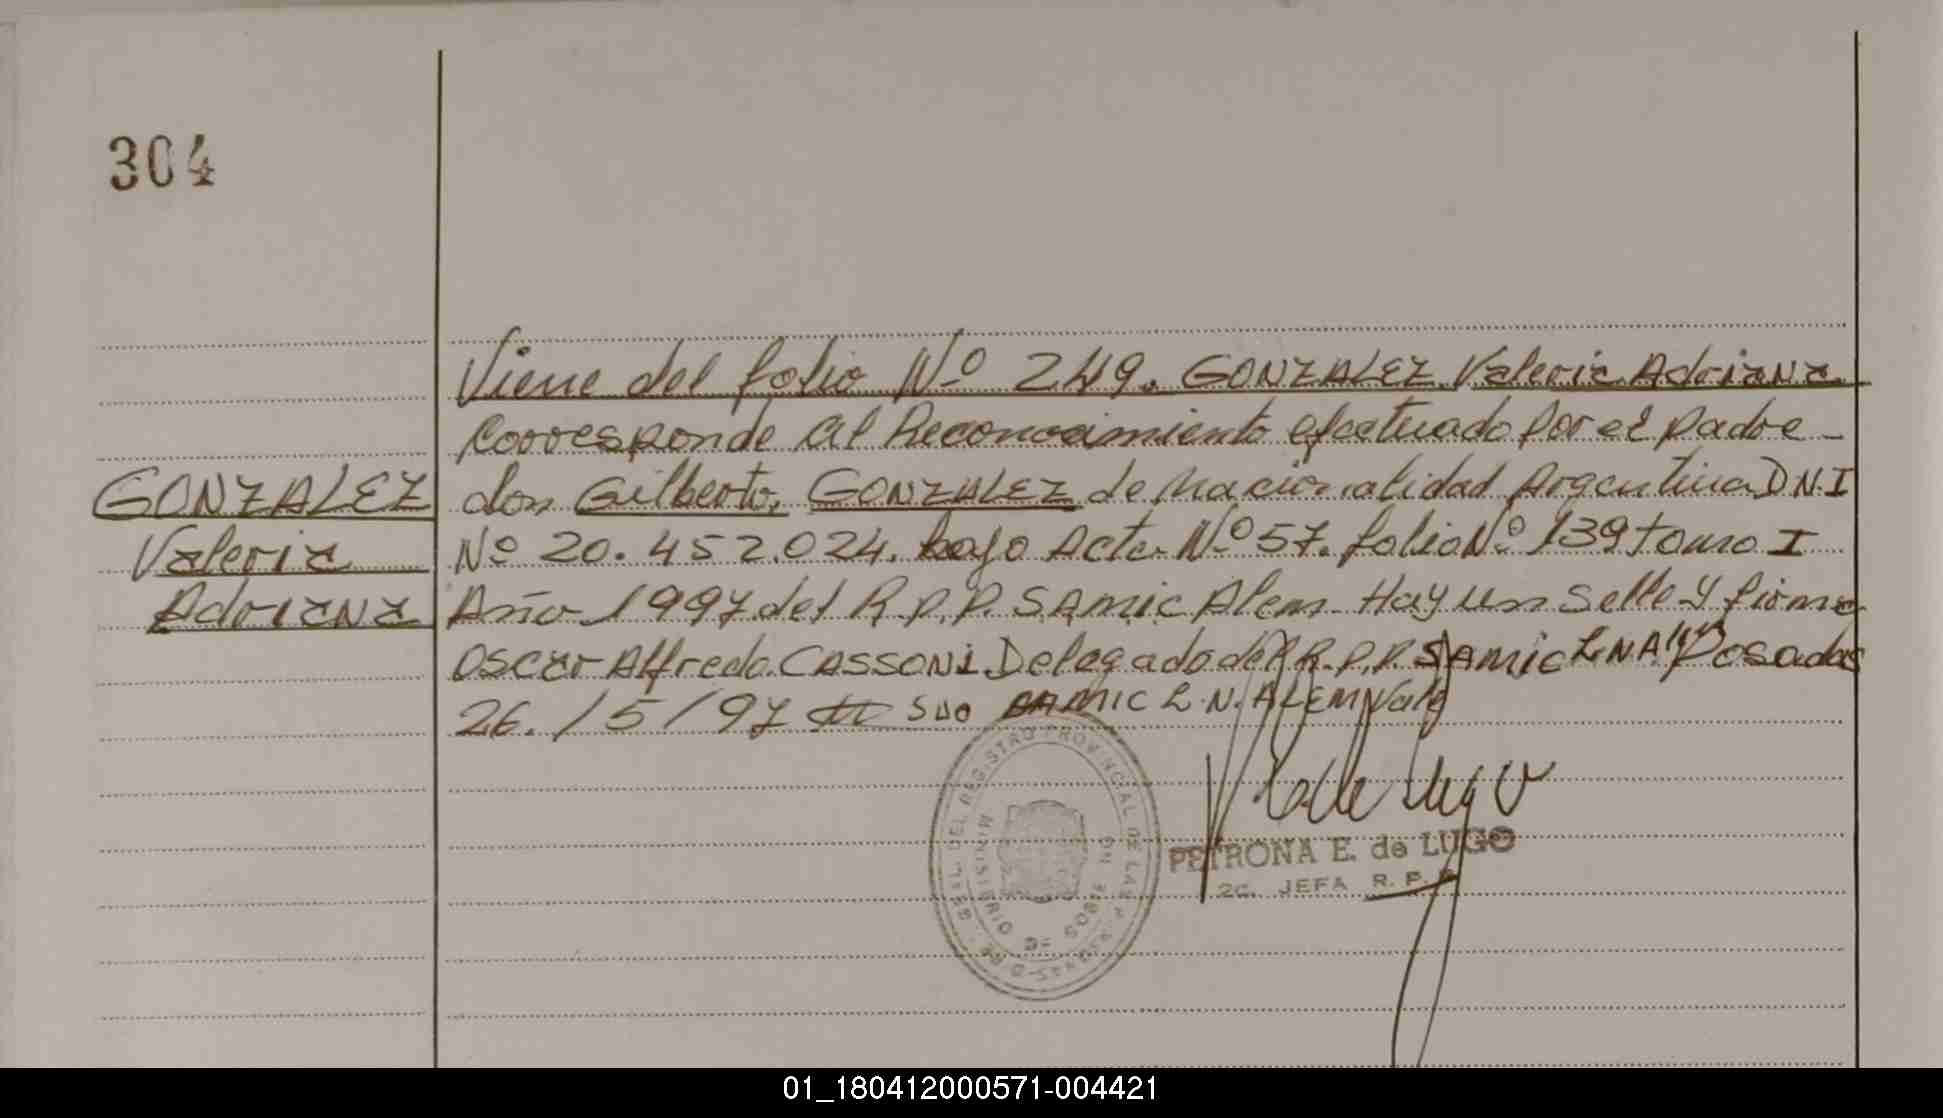 304
Viene del folio Nº 249. GONZALEZ Valeria Adriana
Corresponde al Reconocimiento efectuado por el padre
GONZALEZ
Valeria
Adriana
don Gilberto, GONZALEZ de Nacionalidad Argentina DNI
Nº 20.452.024. bajo Acta Nº 57. folio Nº 139 tomo I
Año 1997 del R.P.P. SAmic Alem Hay un Sello y firma
Oscar Alfredo CASSONi Delegado del R.P.P. SAmic L N A Posadas
26./5/97 SAMIC L.N. ALEM Vale
DEL REGISTRO PROVINCIAL DE LAS PERSONAS
MINISTERIO DE GOBIERNO
PETRONA E. de LUGO
JEFA R.P.P.
01_180412000571-004421